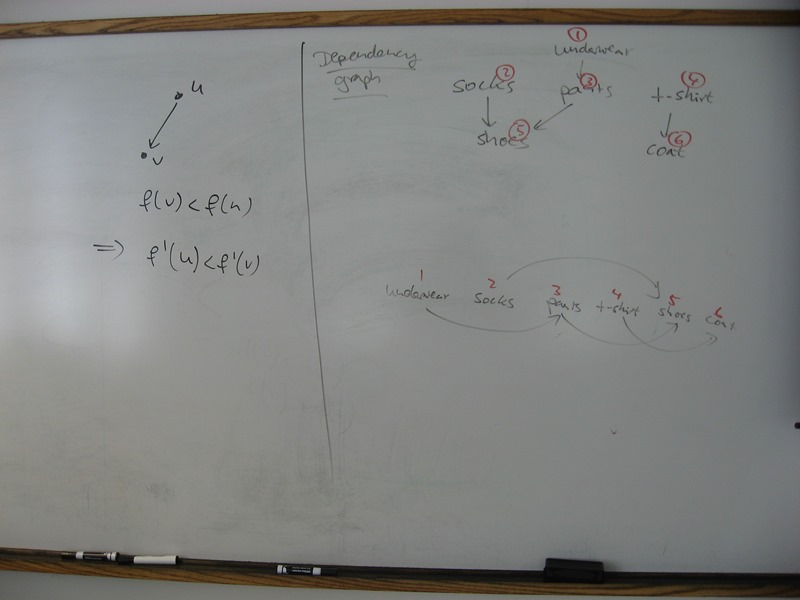 u
v
f(v) < f(u)
⇒ f'(u) < f'(v)
Dependency
graph
1
underwear
socks 2 pants 3 t-shirt 4
shoes 5 coat 6
1 2 3 4 5 6
underwear socks pants t-shirt shoes coat